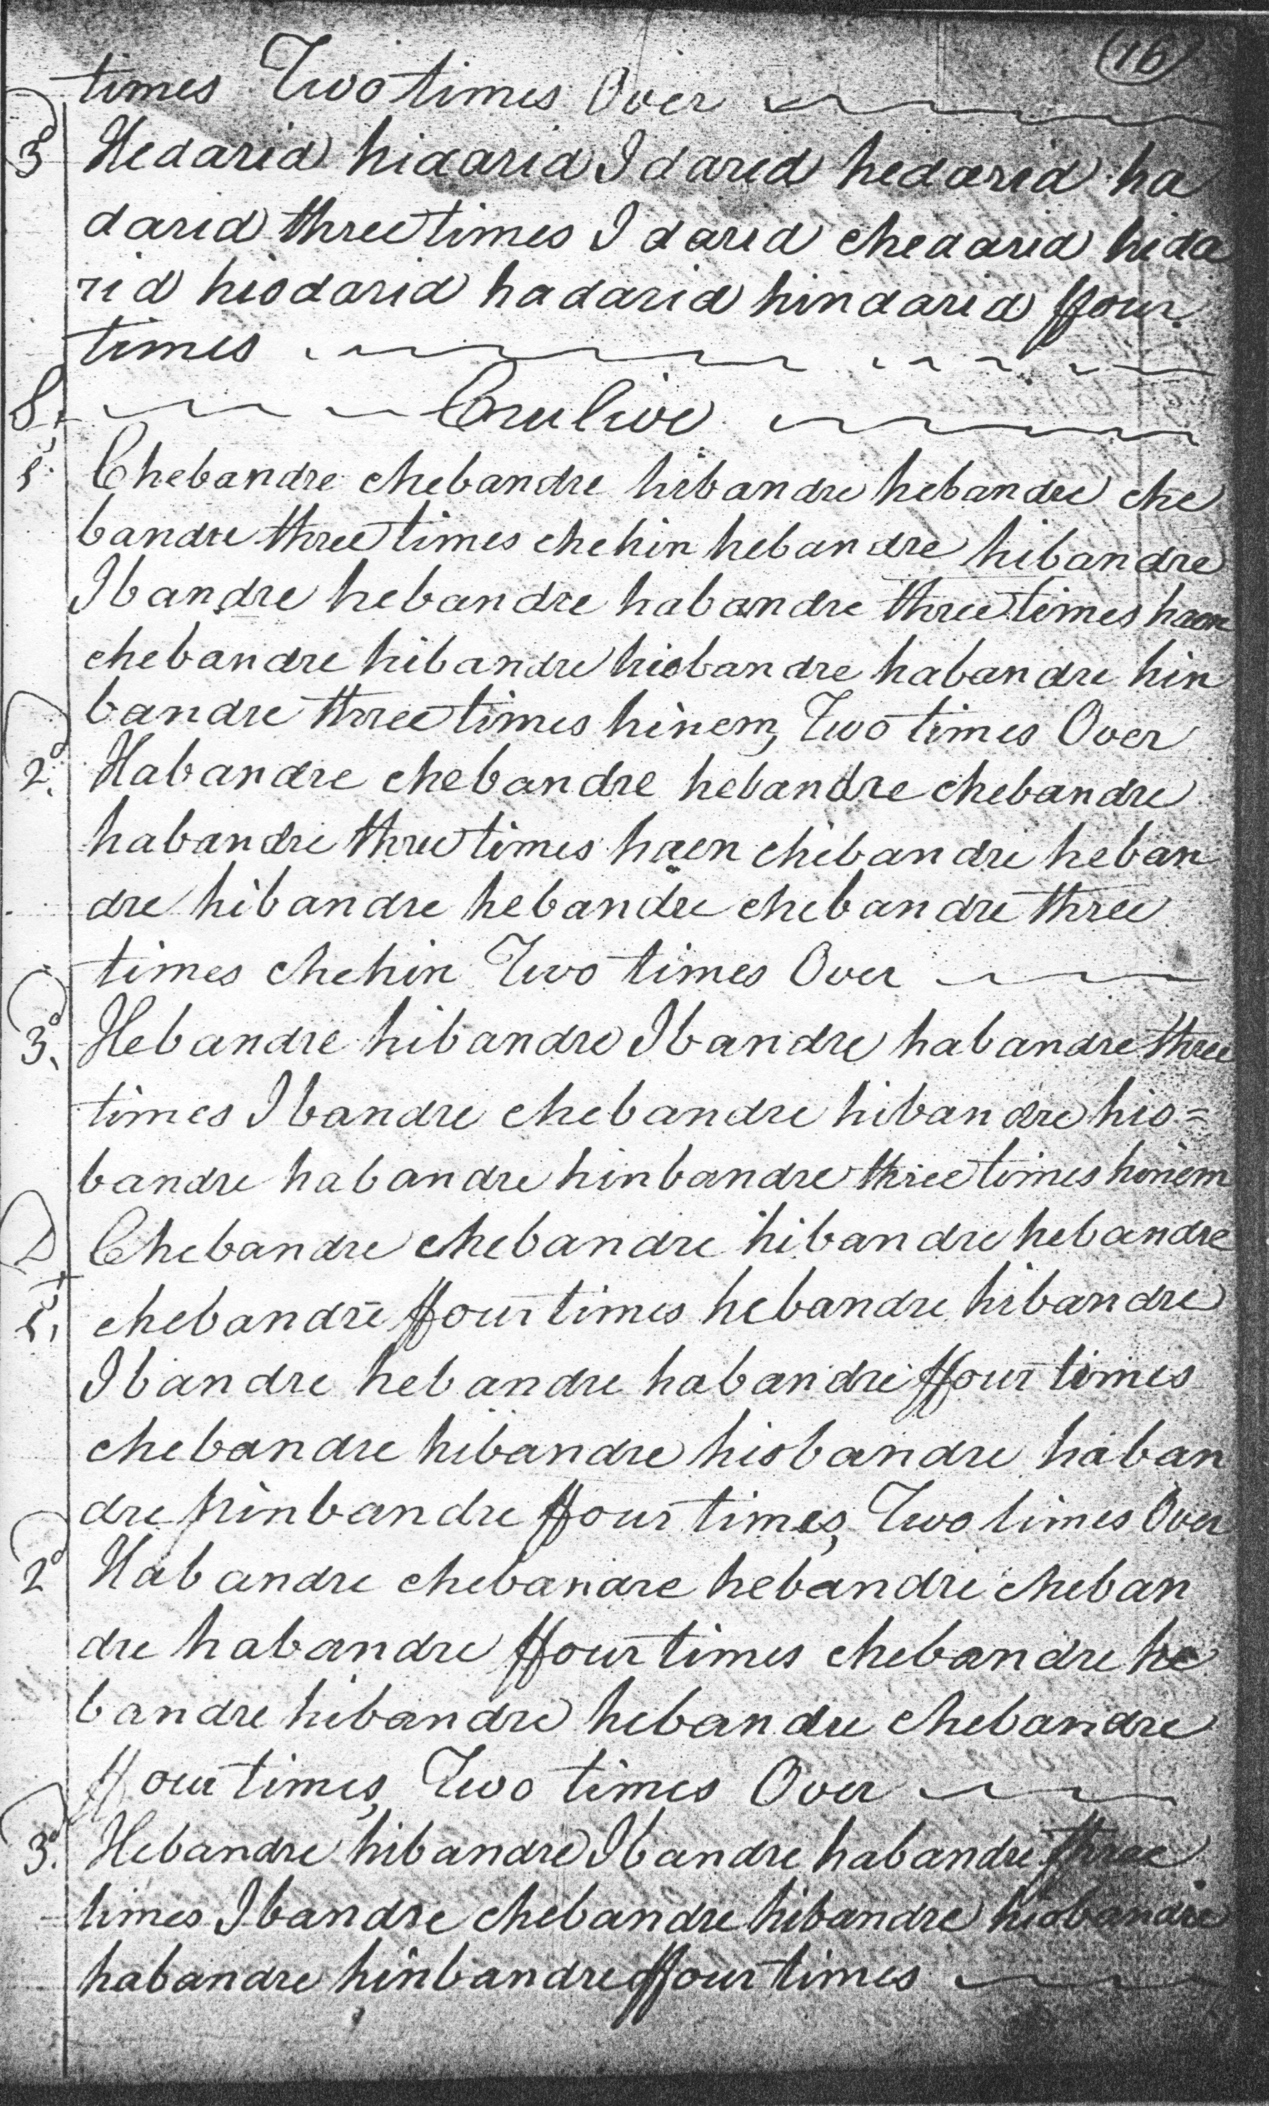 (16)
times Two times Over
3d Hedarid hidarid I darid hedarid ha
darid three times I darid chedarid hida
rid hiodarid hadarid hindarid ffour
times
S, Crulive
1t Chebandre chebandre hibandre hebandre che
bandre three times chehin hebandre hibandre
I bandre hebandre habandre three times haen
chebandre hibandre hiobandre habandre hin
bandre three times hinem, Two times Over
2d Habandre chebandre hebandre chebandre
habandre three times haen chebandre heban
dre hibandre hebandre chebandre three
times chehin Two times Over
3d, Hebandre hibandre I bandre habandre three
times I bandre chebandre hibandre hio=
bandre habandre hinbandre three times hiniem
D Chebandre chebandre hibandre hebandre
1t, chebandre ffour times hebandre hibandre
I bandre hebandre habandre ffour times
chebandre hibandre hiobandre haban
dre hinbandre ffour times, Two times Over
2d Habandre chebandre hebandre cheban
dre habandre ffour times chebandre he
bandre hibandre hebandre chebandre
ffour times, Two times Over
3d. Hebandre hibandre I bandre habandre three
times I bandre chebandre hibandre hiobandre
habandre hinbandre ffour times